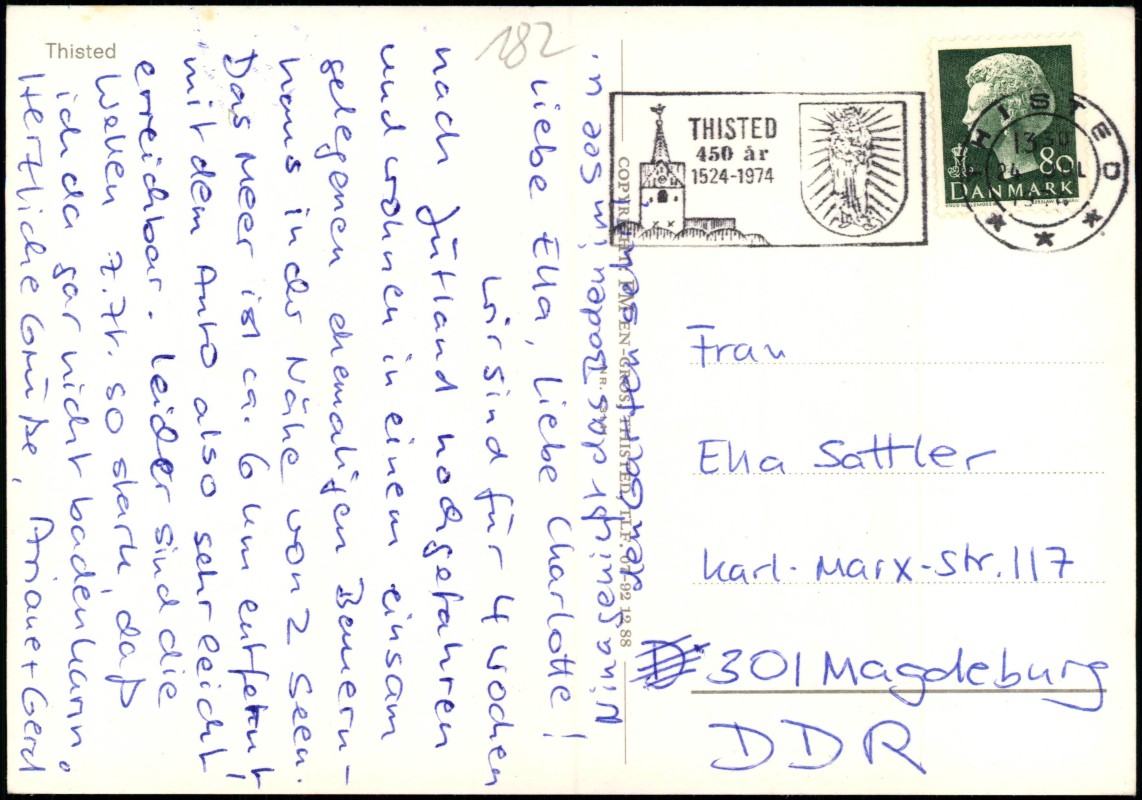 Thisted
182
Liebe Ella, Liebe Charlotte!
Wir sind für 4 Wochen
nach Jütland hochgefahren
und wohnen in einem einsam
gelegenen ehemaligen Bauern-
haus in der Nähe von 2 Seen.
Das Meer ist ca. 6 km entfernt,
mit dem Auto also sehr leicht
erreichbar. Leider sind die
Wellen z.Zt. so stark, daß
ich da gar nicht baden kann.
Herzliche Grüße, Ariane + Gerd
Nina genießt das Baden im See u.
COPYRIGHT: EMDEN-GROS, THISTED, TLF. 07-92 12 88
NR.
THISTED
450 år
1524-1974
THISTED
13-
24
80
DANMARK
Frau
Ella Sattler
Karl-Marx-Str. 117
301 Magdeburg
DDR